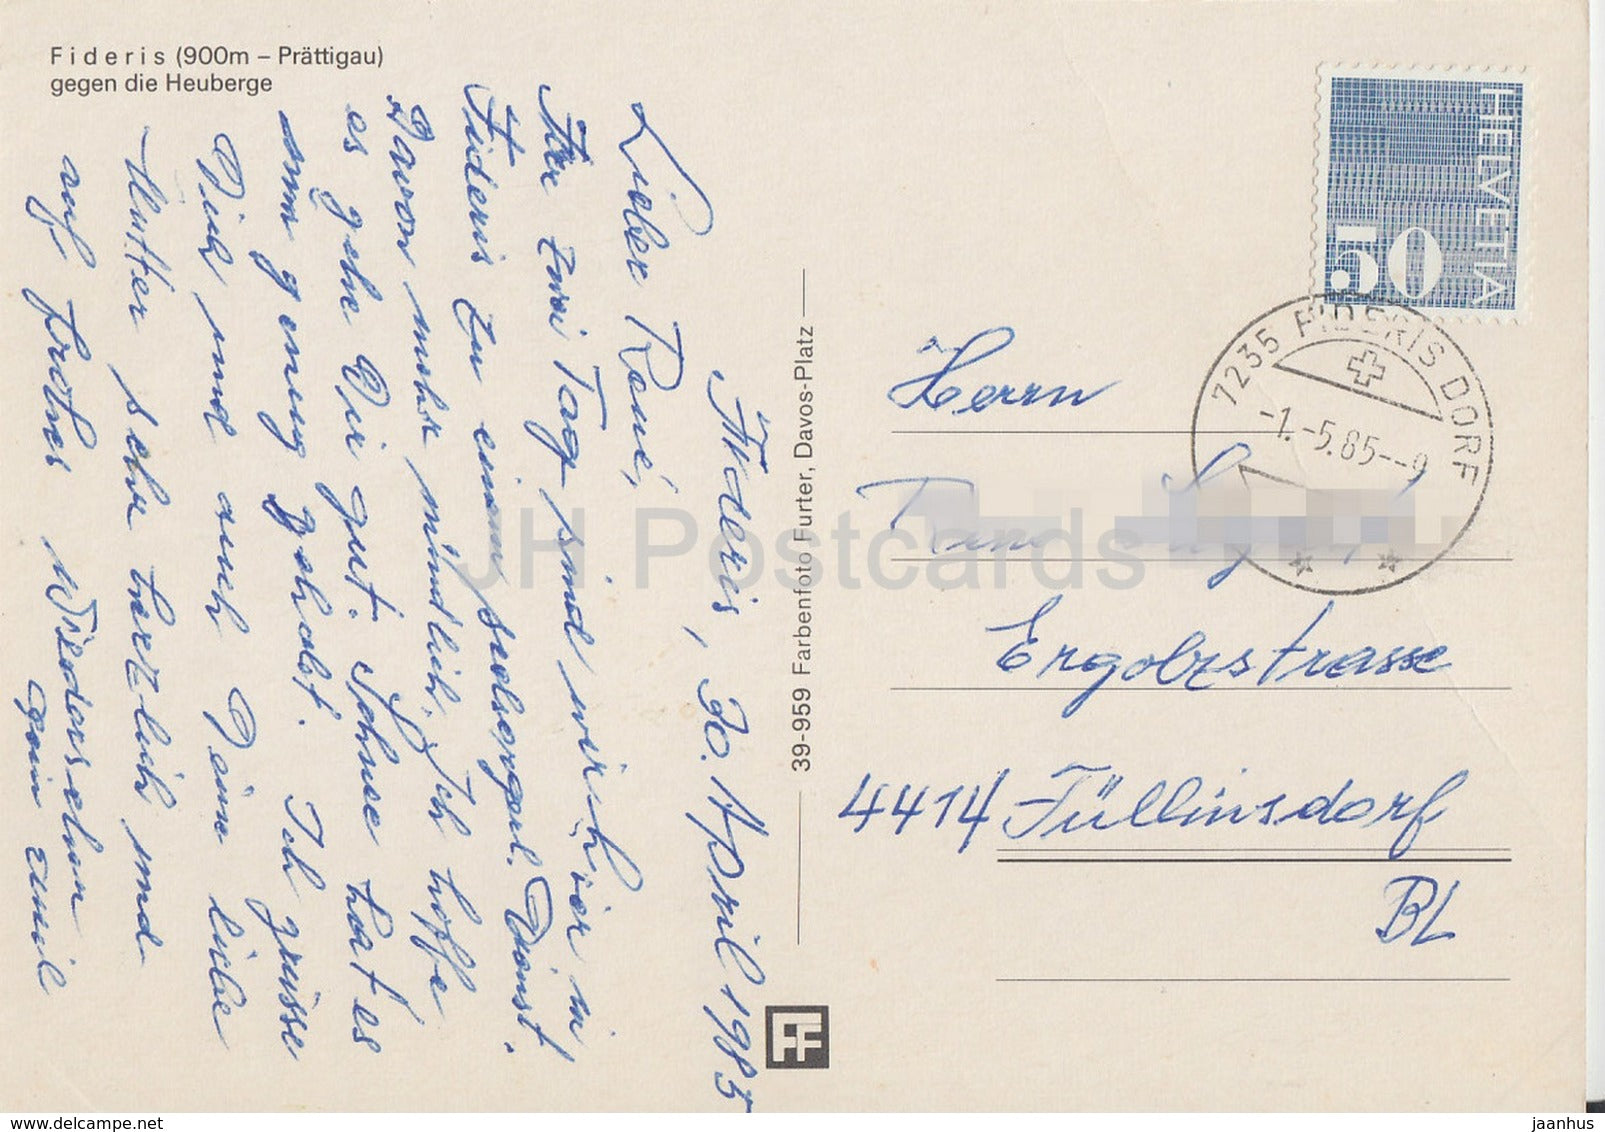 Fideris (900m – Prättigau)
gegen die Heuberge
Fideris, 30. April 1985
Lieber René,
Für zwei Tag sind wir hier in
Fideris zu einem seelsorgerl. Dienst.
Davon mehr mündlich. Ich hoffe
es gehe Dir gut. Schnee hat es
nun genug gehabt. Ich grüsse
Dich und auch Deine liebe
Mutter sehr herzlich und
auf frohes Wiedersehen
39-959 Farbenfoto Furter, Davos-Platz
FF
HELVETIA
50
7235 FIDERIS DORF
-1.-5.85--9
Herrn
Ergolzstrasse
4414 Füllinsdorf
BL
JH Postcards
jaanhus